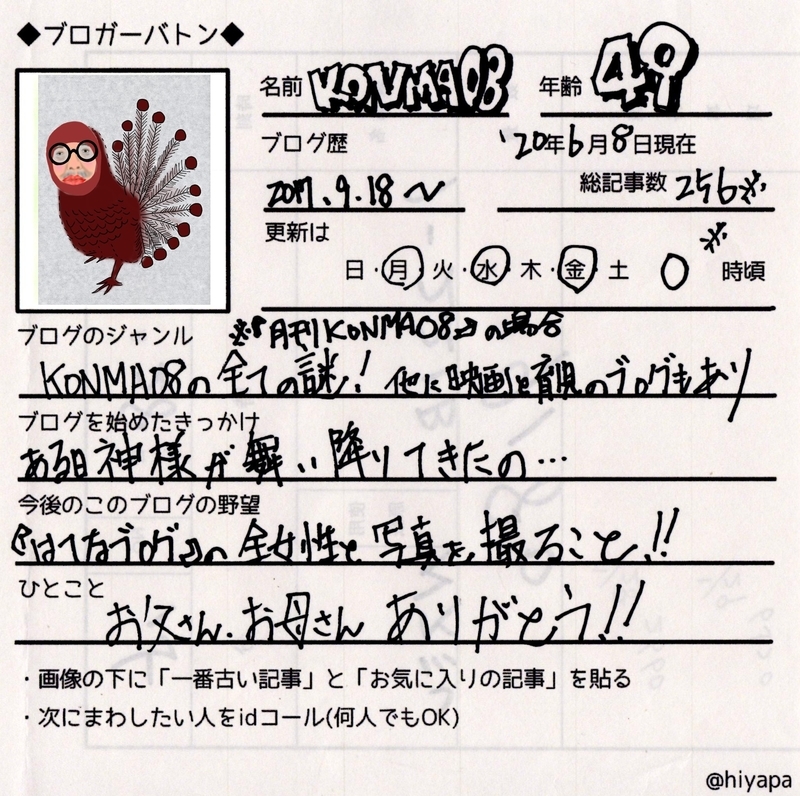 ◆ブロガーバトン◆
名前 KONMA08 年齢 49
ブログ歴 '20年6月8日現在
2017.9.18〜 総記事数 256※
更新は ※
日・月・火・水・木・金・土 0 時頃
ブログのジャンル ※『月刊KONMA08』の場合
KONMA08の全ての謎! 他に映画と育児のブログもあり
ブログを始めたきっかけ
ある日神様が舞い降りてきたの…
今後のこのブログの野望
『はてなブログ』の全女性と写真を撮ること!!
ひとこと
お父さん、お母さん ありがとう!!
・画像の下に「一番古い記事」と「お気に入りの記事」を貼る
・次にまわしたい人をidコール(何人でもOK)
@hiyapa